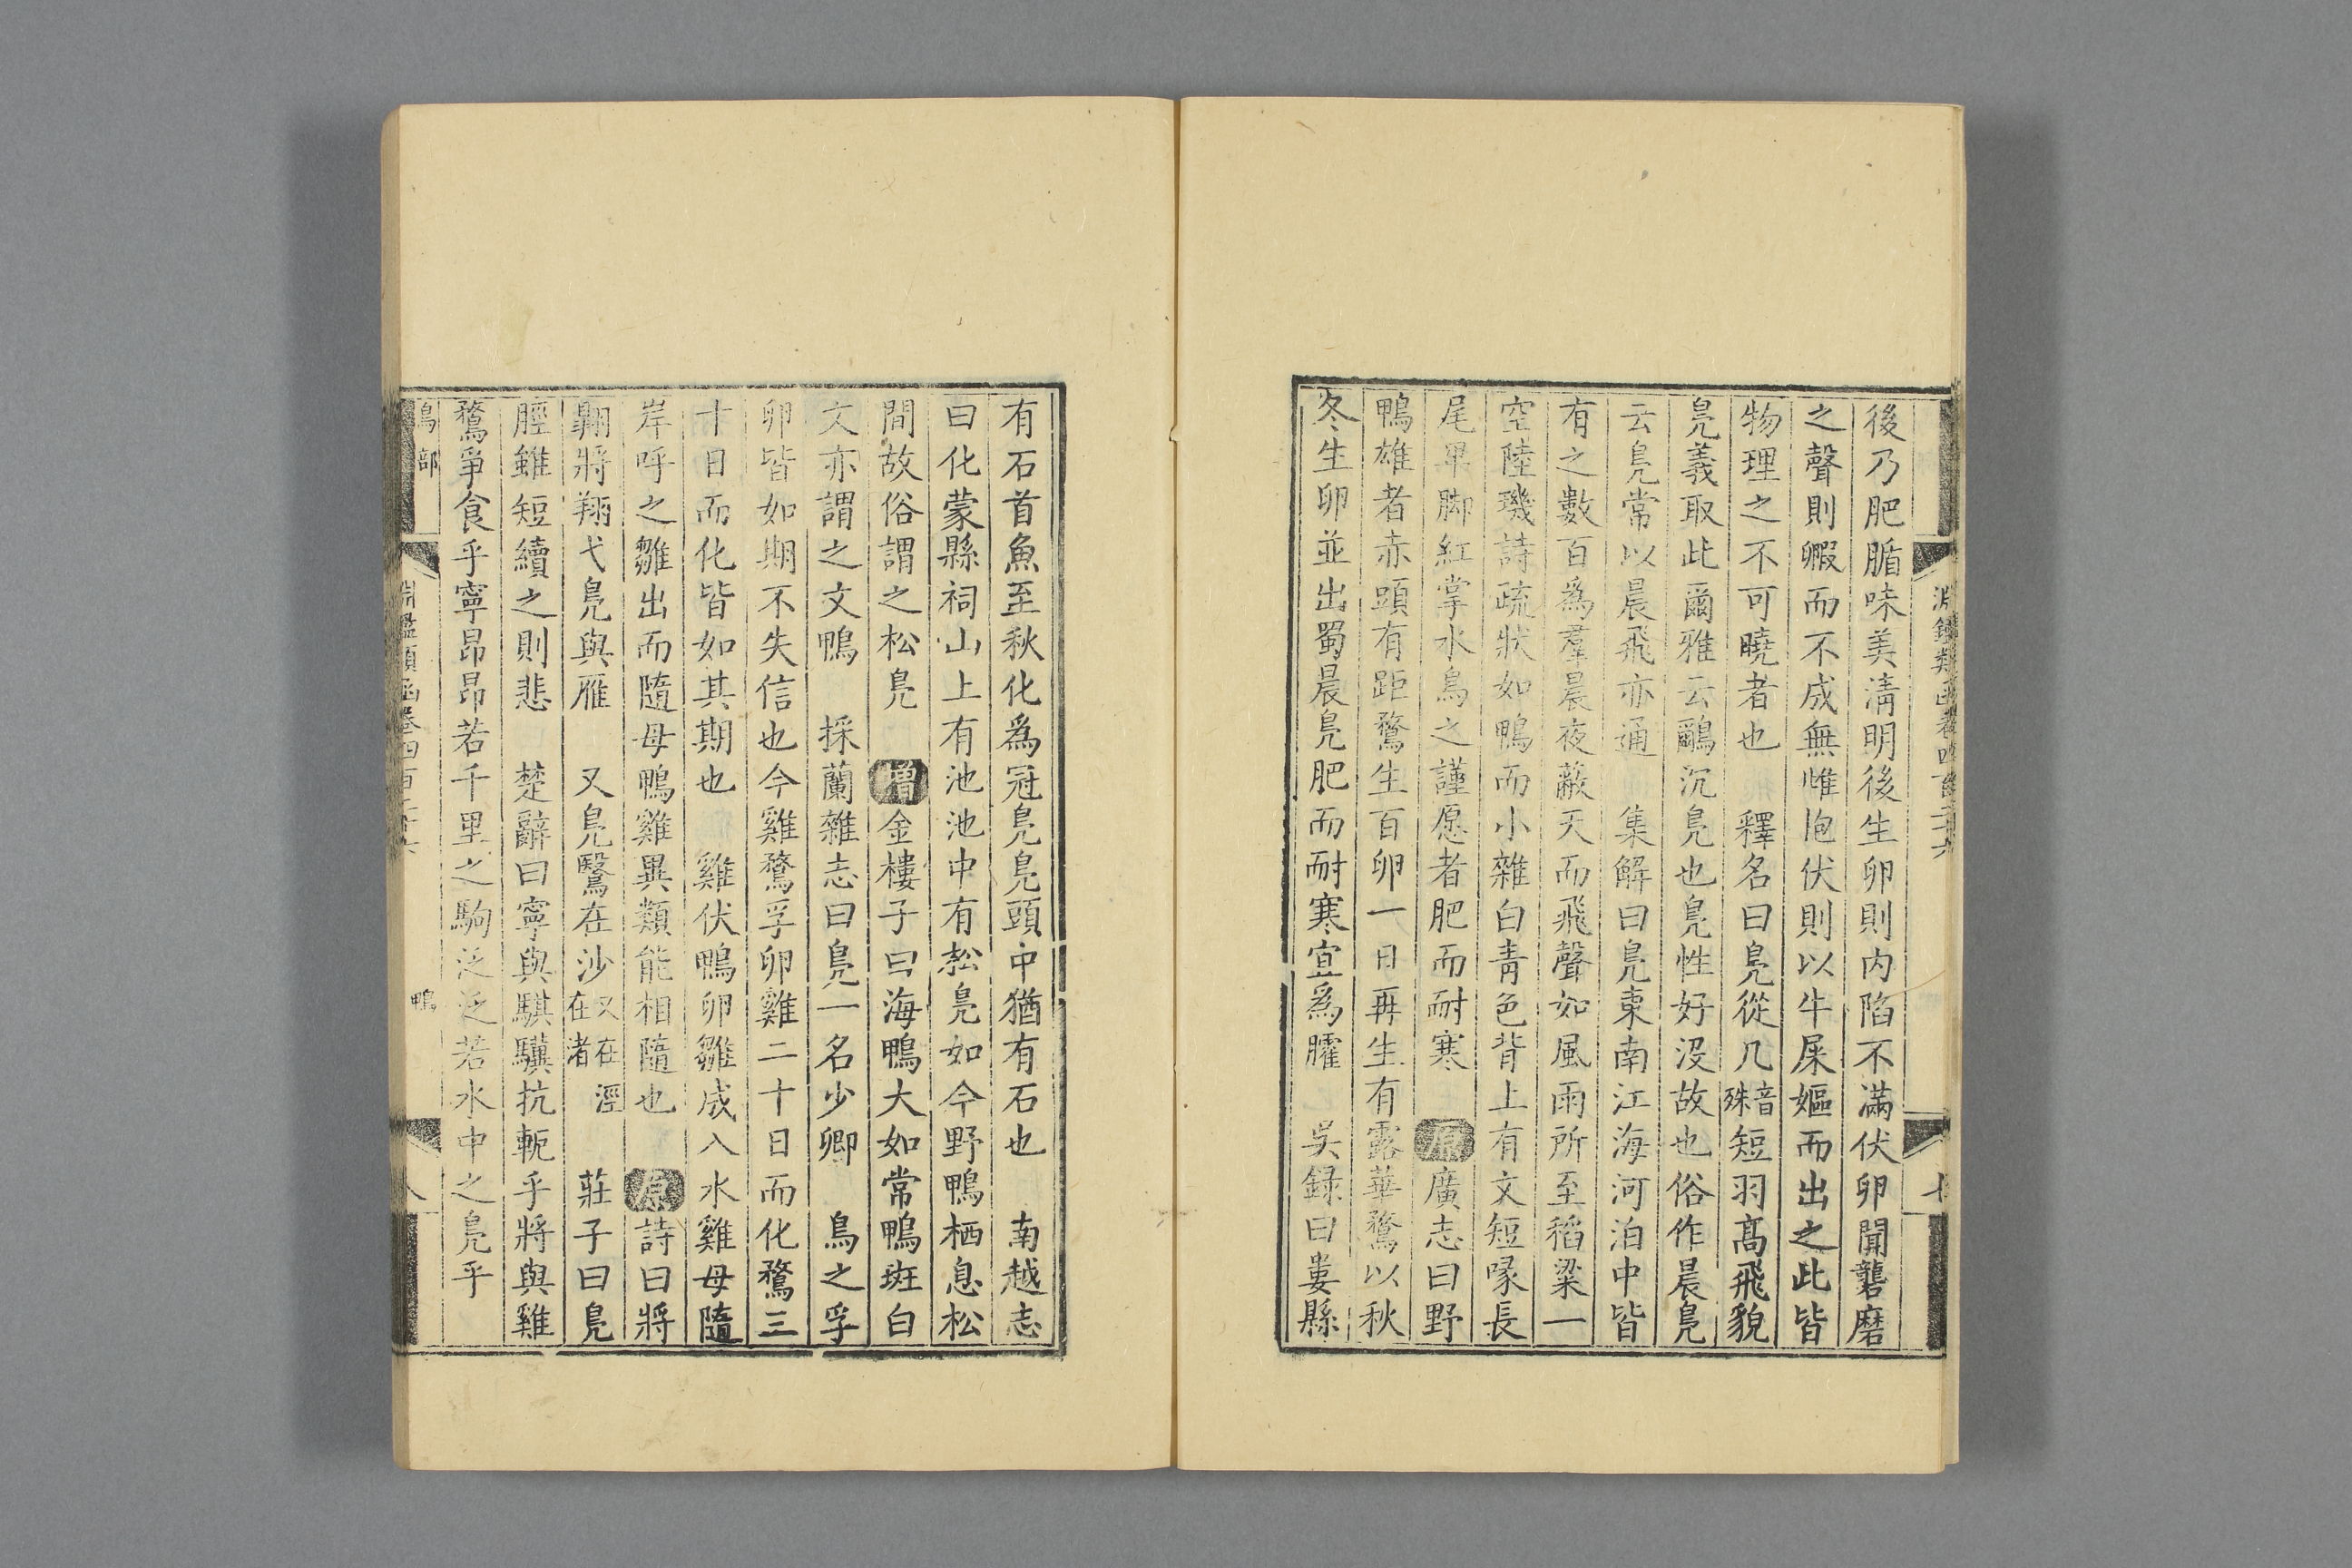 淵鑑類函卷四百二十六
七
後乃肥腯味美清明後生卵則内陷不滿伏卵聞礱磨
之聲則毈而不成無雌抱伏則以牛屎嫗而出之此皆
物理之不可曉者也 釋名曰鳧從几音殊短羽高飛貌
鳧義取此爾雅云鸍沉鳧也鳧性好没故也俗作晨鳧
云鳧常以晨飛亦通 集解曰鳧東南江海河泊中皆
有之數百爲羣晨夜蔽天而飛聲如風雨所至稻粱一
空陸璣詩疏狀如鴨而小雜白青色背上有文短喙長
尾卑脚紅掌水鳥之謹愿者肥而耐寒 原廣志曰野
鴨雄者赤頭有距鶩生百卵一日再生有露華鶩以秋
冬生卵並出蜀晨鳧肥而耐寒宜爲臛 吳録曰婁縣
有石首魚至秋化爲冠鳧鳧頭中猶有石也 南越志
曰化蒙縣祠山上有池池中有松鳧如今野鴨栖息松
間故俗謂之松鳧 增金樓子曰海鴨大如常鴨斑白
文亦謂之文鴨 採蘭雜志曰鳧一名少卿 鳥之孚
卵皆如期不失信也今雞鶩孚卵雞二十日而化鶩三
十日而化皆如其期也 雞伏鴨卵雛成入水雞母隨
岸呼之雛出而隨母鴨雞異類能相隨也 原詩曰將
翺將翔弋鳧與雁 又鳧鷖在沙又在渚在涇 莊子曰鳧
脛雖短續之則悲 楚辭曰寧與騏驥抗軛乎將與雞
鶩爭食乎寧昂昂若千里之駒泛泛若水中之鳧乎
鳥部
淵鑑類函卷四百二十六
鴨
八